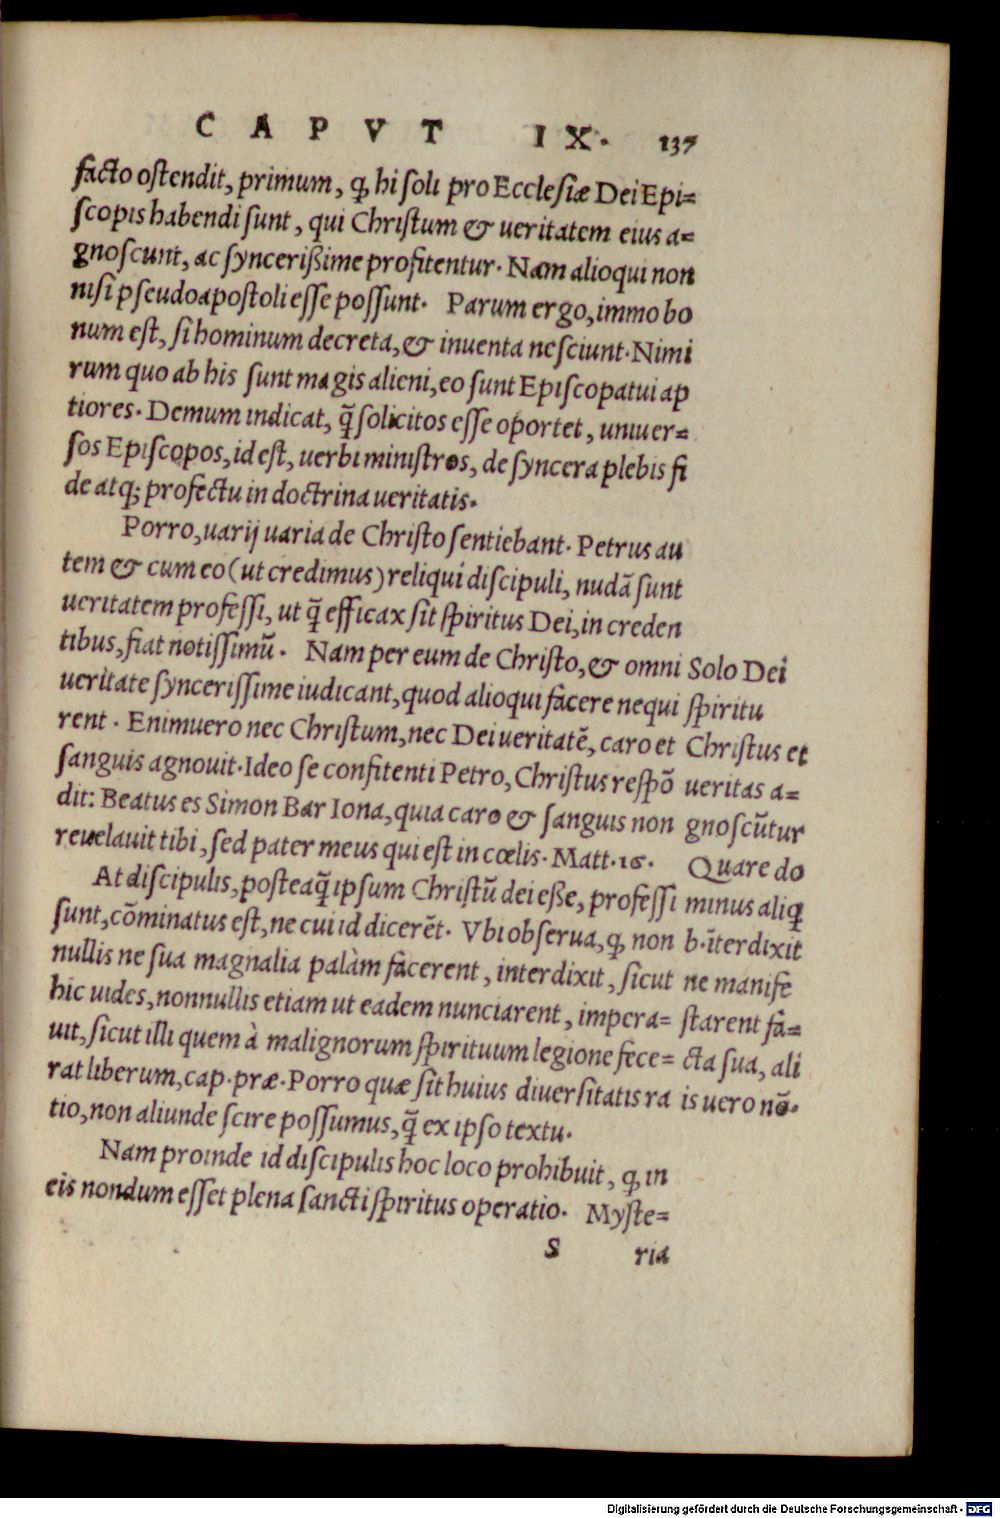 CAPVT IX. 137
facto ostendit, primum, ꝙ hi soli pro Ecclesiæ Dei Epi=
scopis habendi sunt, qui Christum & ueritatem eius a=
gnoscunt, ac syncerißime profitentur. Nam alioqui non
nisi pseudoapostoli esse possunt. Parum ergo, immo bo
num est, si hominum decreta, & inuenta nesciunt. Nimi
rum quo ab his sunt magis alieni, eo sunt Episcopatui ap
tiores. Demum indicat, q̃ solicitos esse oportet, uniuer=
sos Episcopos, id est, uerbi ministros, de syncera plebis fi
de atq; profectu in doctrina ueritatis.
Porro, uarij uaria de Christo sentiebant. Petrus au
tem & cum eo (ut credimus) reliqui discipuli, nudã sunt
ueritatem professi, ut q̃ efficax sit spiritus Dei, in creden
tibus, fiat notissimũ. Nam per eum de Christo, & omni
ueritate syncerissime iudicant, quod alioqui facere nequi
rent. Enimuero nec Christum, nec Dei ueritatẽ, caro et
sanguis agnouit. Ideo se confitenti Petro, Christus respõ
dit: Beatus es Simon Bar Iona, quia caro & sanguis non
reuelauit tibi, sed pater meus qui est in cœlis. Matt. 16.
At discipulis, posteaq̃ ipsum Christũ dei eße, professi
sunt, cõminatus est, ne cui id dicerẽt. Vbi obserua, ꝙ non
nullis ne sua magnalia palàm facerent, interdixit, sicut
hic uides, nonnullis etiam ut eadem nunciarent, impera=
uit, sicut illi quem à malignorum spirituum legione fece=
rat liberum, cap. præ. Porro quæ sit huius diuersitatis ra
tio, non aliunde scire possumus, q̃ ex ipso textu.
Nam proinde id discipulis hoc loco prohibuit, ꝙ in
eis nondum esset plena sancti spiritus operatio. Myste=
S ria
Solo Dei
spiritu
Christus et
ueritas a=
gnoscũtur
Quare do
minus aliq
b. ĩterdixit
ne manife
starent fa=
cta sua, ali
is uero nõ.
Digitalisierung gefördert durch die Deutsche Forschungsgemeinschaft - DFG